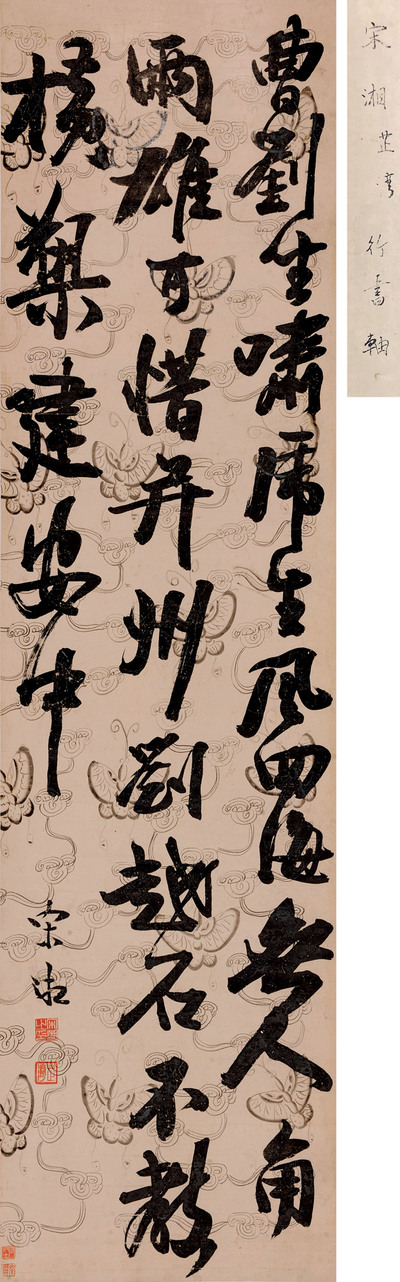 曹劉坐嘯虎生風四海無人角
兩雄可惜并州劉越石不教
橫槊建安中
宋湘
宋湘芷湾行書軸